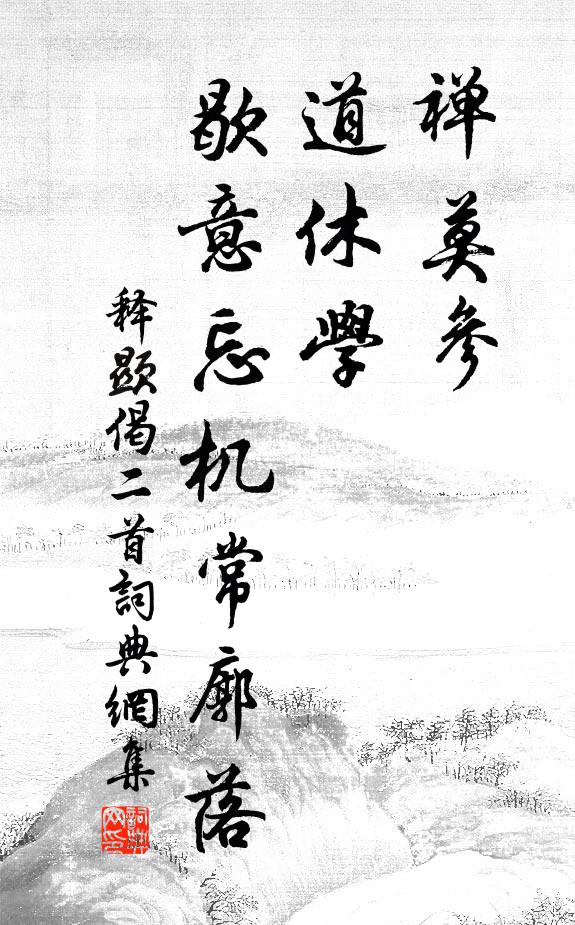 禅莫参
道休學
歇意忘机常廓落
释顯偈二首詞典網集
詞典網印